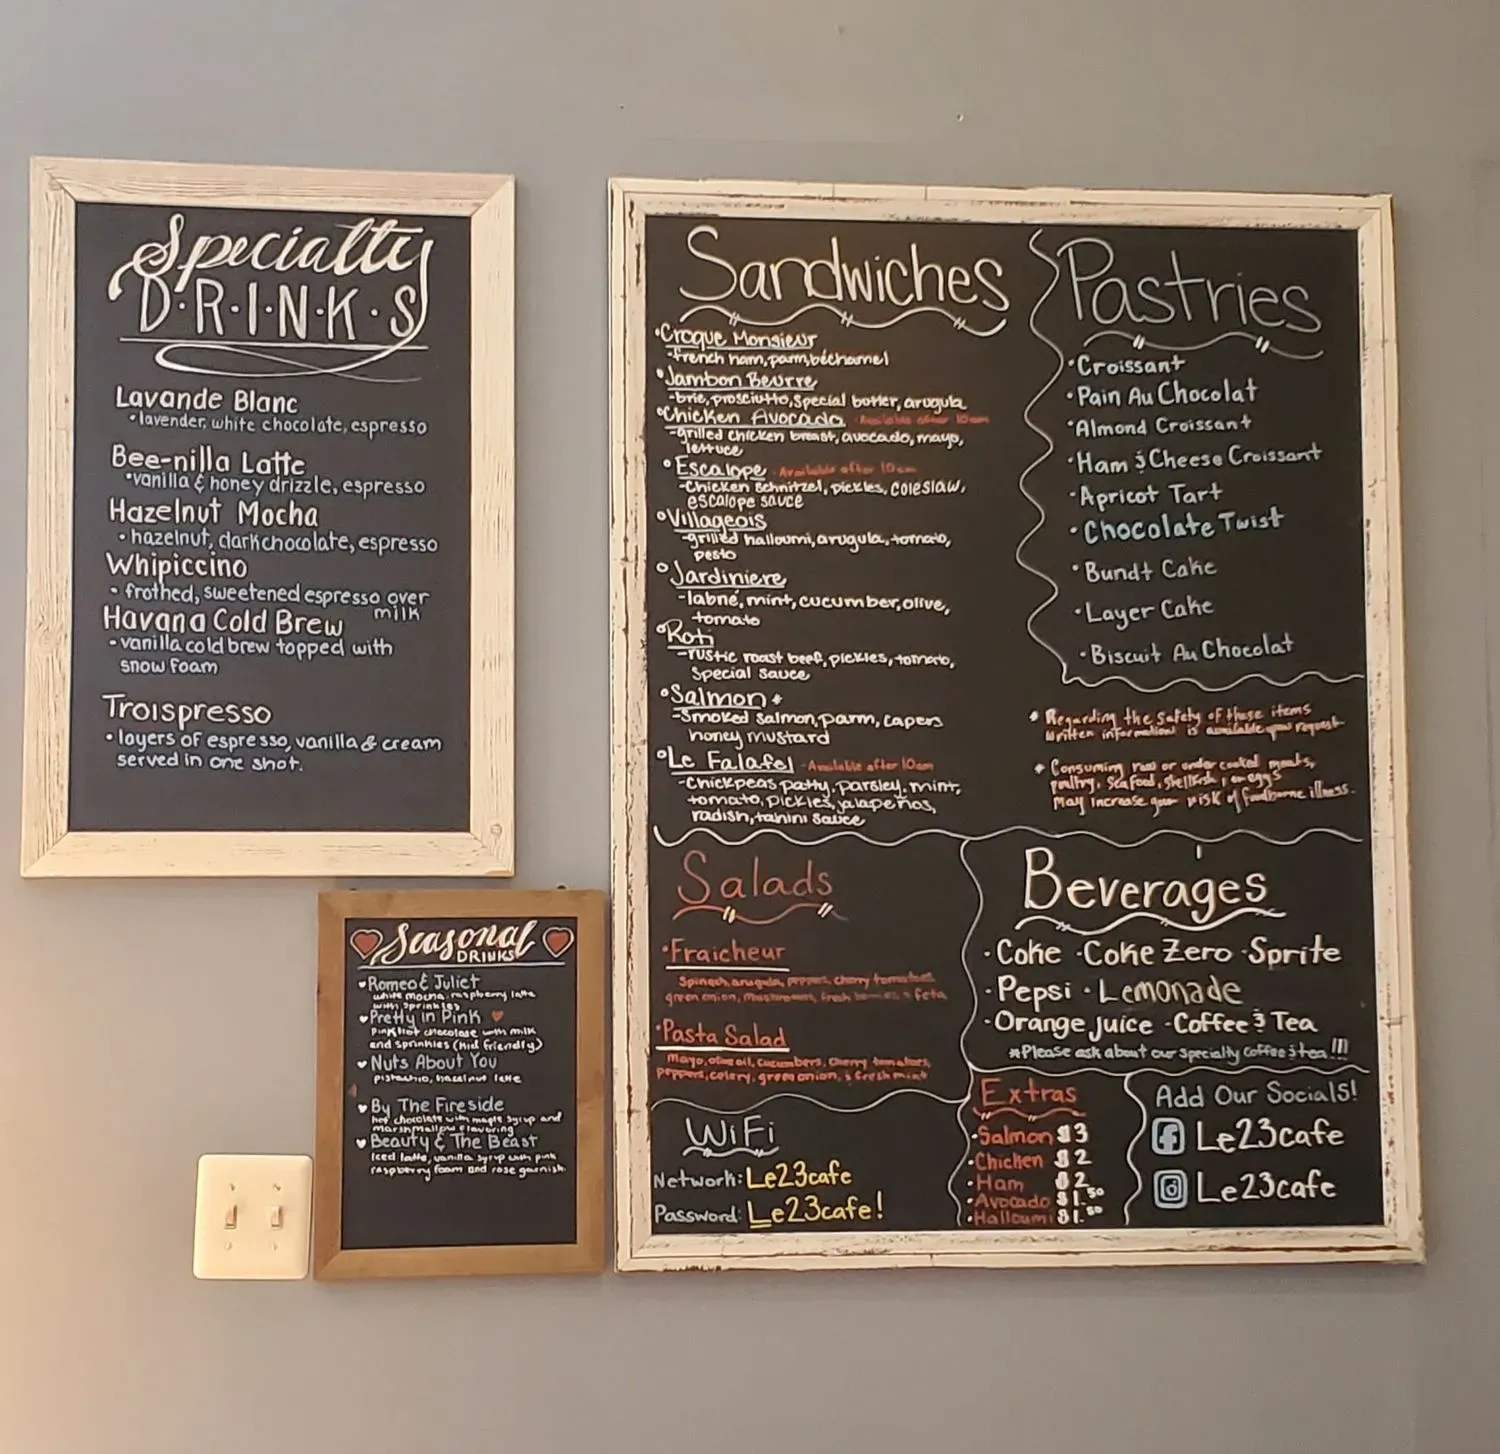 Specialty
D·R·I·N·K·S
Lavande Blanc
• lavender, white chocolate, espresso
Bee-nilla Latte
• vanilla & honey drizzle, espresso
Hazelnut Mocha
• hazelnut, dark chocolate, espresso
Whipiccino
• frothed, sweetened espresso over
milk
Havana Cold Brew
- vanilla cold brew topped with
snow foam
Troispresso
• layers of espresso, vanilla & cream
served in one shot.
Seasonal
DRINKS
Romeo & Juliet
white mocha, raspberry latte
with sprinkles
Pretty in Pink
Pink hot chocolate with milk
and sprinkles (kid friendly)
Nuts About You
pistachio, hazelnut latte
By The Fireside
hot chocolate with maple syrup and
marshmallow flavoring
Beauty & The Beast
Iced latte, vanilla syrup with pink
raspberry foam and rose garnish.
Sandwiches
•Croque Monsieur
-french ham, parm, béchamel
•Jambon Beurre
-brie, prosciutto, special butter, arugula
•Chicken Avocado -Available after 10am
-grilled chicken breast, avocado, mayo,
lettuce
•Escalope -Available after 10am
-Chicken Schnitzel, pickles, coleslaw,
escalope sauce
•Villageois
-grilled halloumi, arugula, tomato,
pesto
•Jardiniere
-labné, mint, cucumber, olive,
tomato
•Roti
-rustic roast beef, pickles, tomato,
Special sauce
•Salmon *
-Smoked salmon, parm, capers
honey mustard
•Le Falafel -Available after 10am
-Chickpeas patty, parsley, mint,
tomato, pickles, jalapeños,
radish, tahini sauce
Pastries
•Croissant
•Pain Au Chocolat
•Almond Croissant
•Ham & Cheese Croissant
•Apricot Tart
•Chocolate Twist
•Bundt Cake
•Layer Cake
•Biscuit Au Chocolat
* Regarding the safety of these items
written information is available upon request
* Consuming raw or under cooked meats,
poultry, seafood, shellfish, or eggs
May increase your risk of foodborne illness.
Salads
•Fraicheur
Spinach, arugula, peppers, cherry tomatoes,
green onion, mushrooms, fresh berries & feta
•Pasta Salad
Mayo, olive oil, cucumbers, cherry tomatoes,
peppers, celery, green onion, & fresh mint
Beverages
•Coke •Coke Zero •Sprite
•Pepsi •Lemonade
•Orange juice •Coffee & Tea
*Please ask about our specialty coffee & tea!!!
WiFi
Network: Le23cafe
Password: Le23cafe!
Extras
•Salmon $3
•Chicken $2
•Ham $2
•Avocado $1.50
•Halloumi $1.50
Add Our Socials!
Le23cafe
Le23cafe